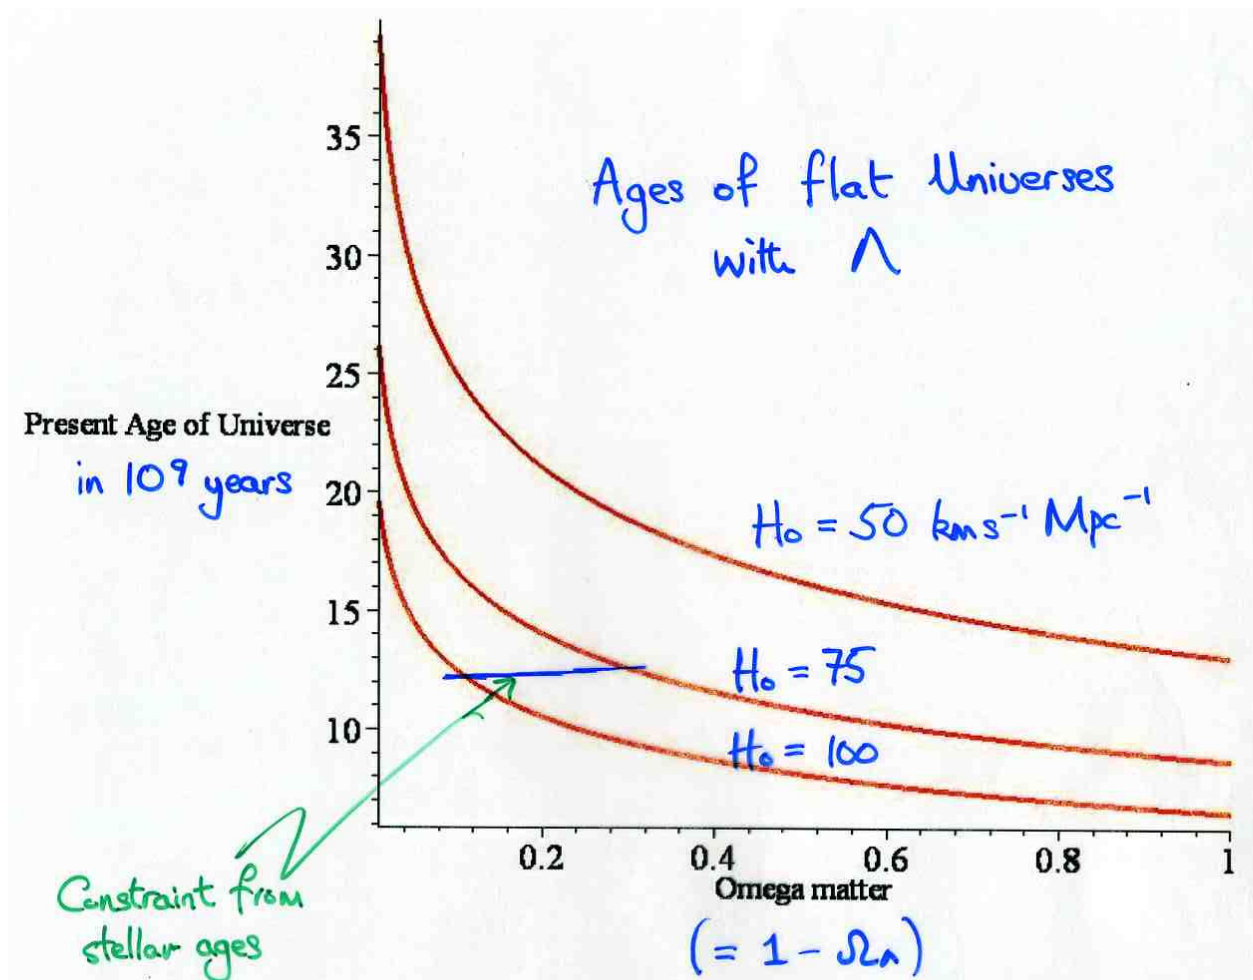 Ages of flat Universes
with Λ
35
30
25
20
15
10
Present Age of Universe
in 10⁹ years
H₀ = 50 kms⁻¹ Mpc⁻¹
H₀ = 75
H₀ = 100
0.2
0.4
0.6
0.8
1
Omega matter
(= 1 - Ω_Λ)
Constraint from
stellar ages